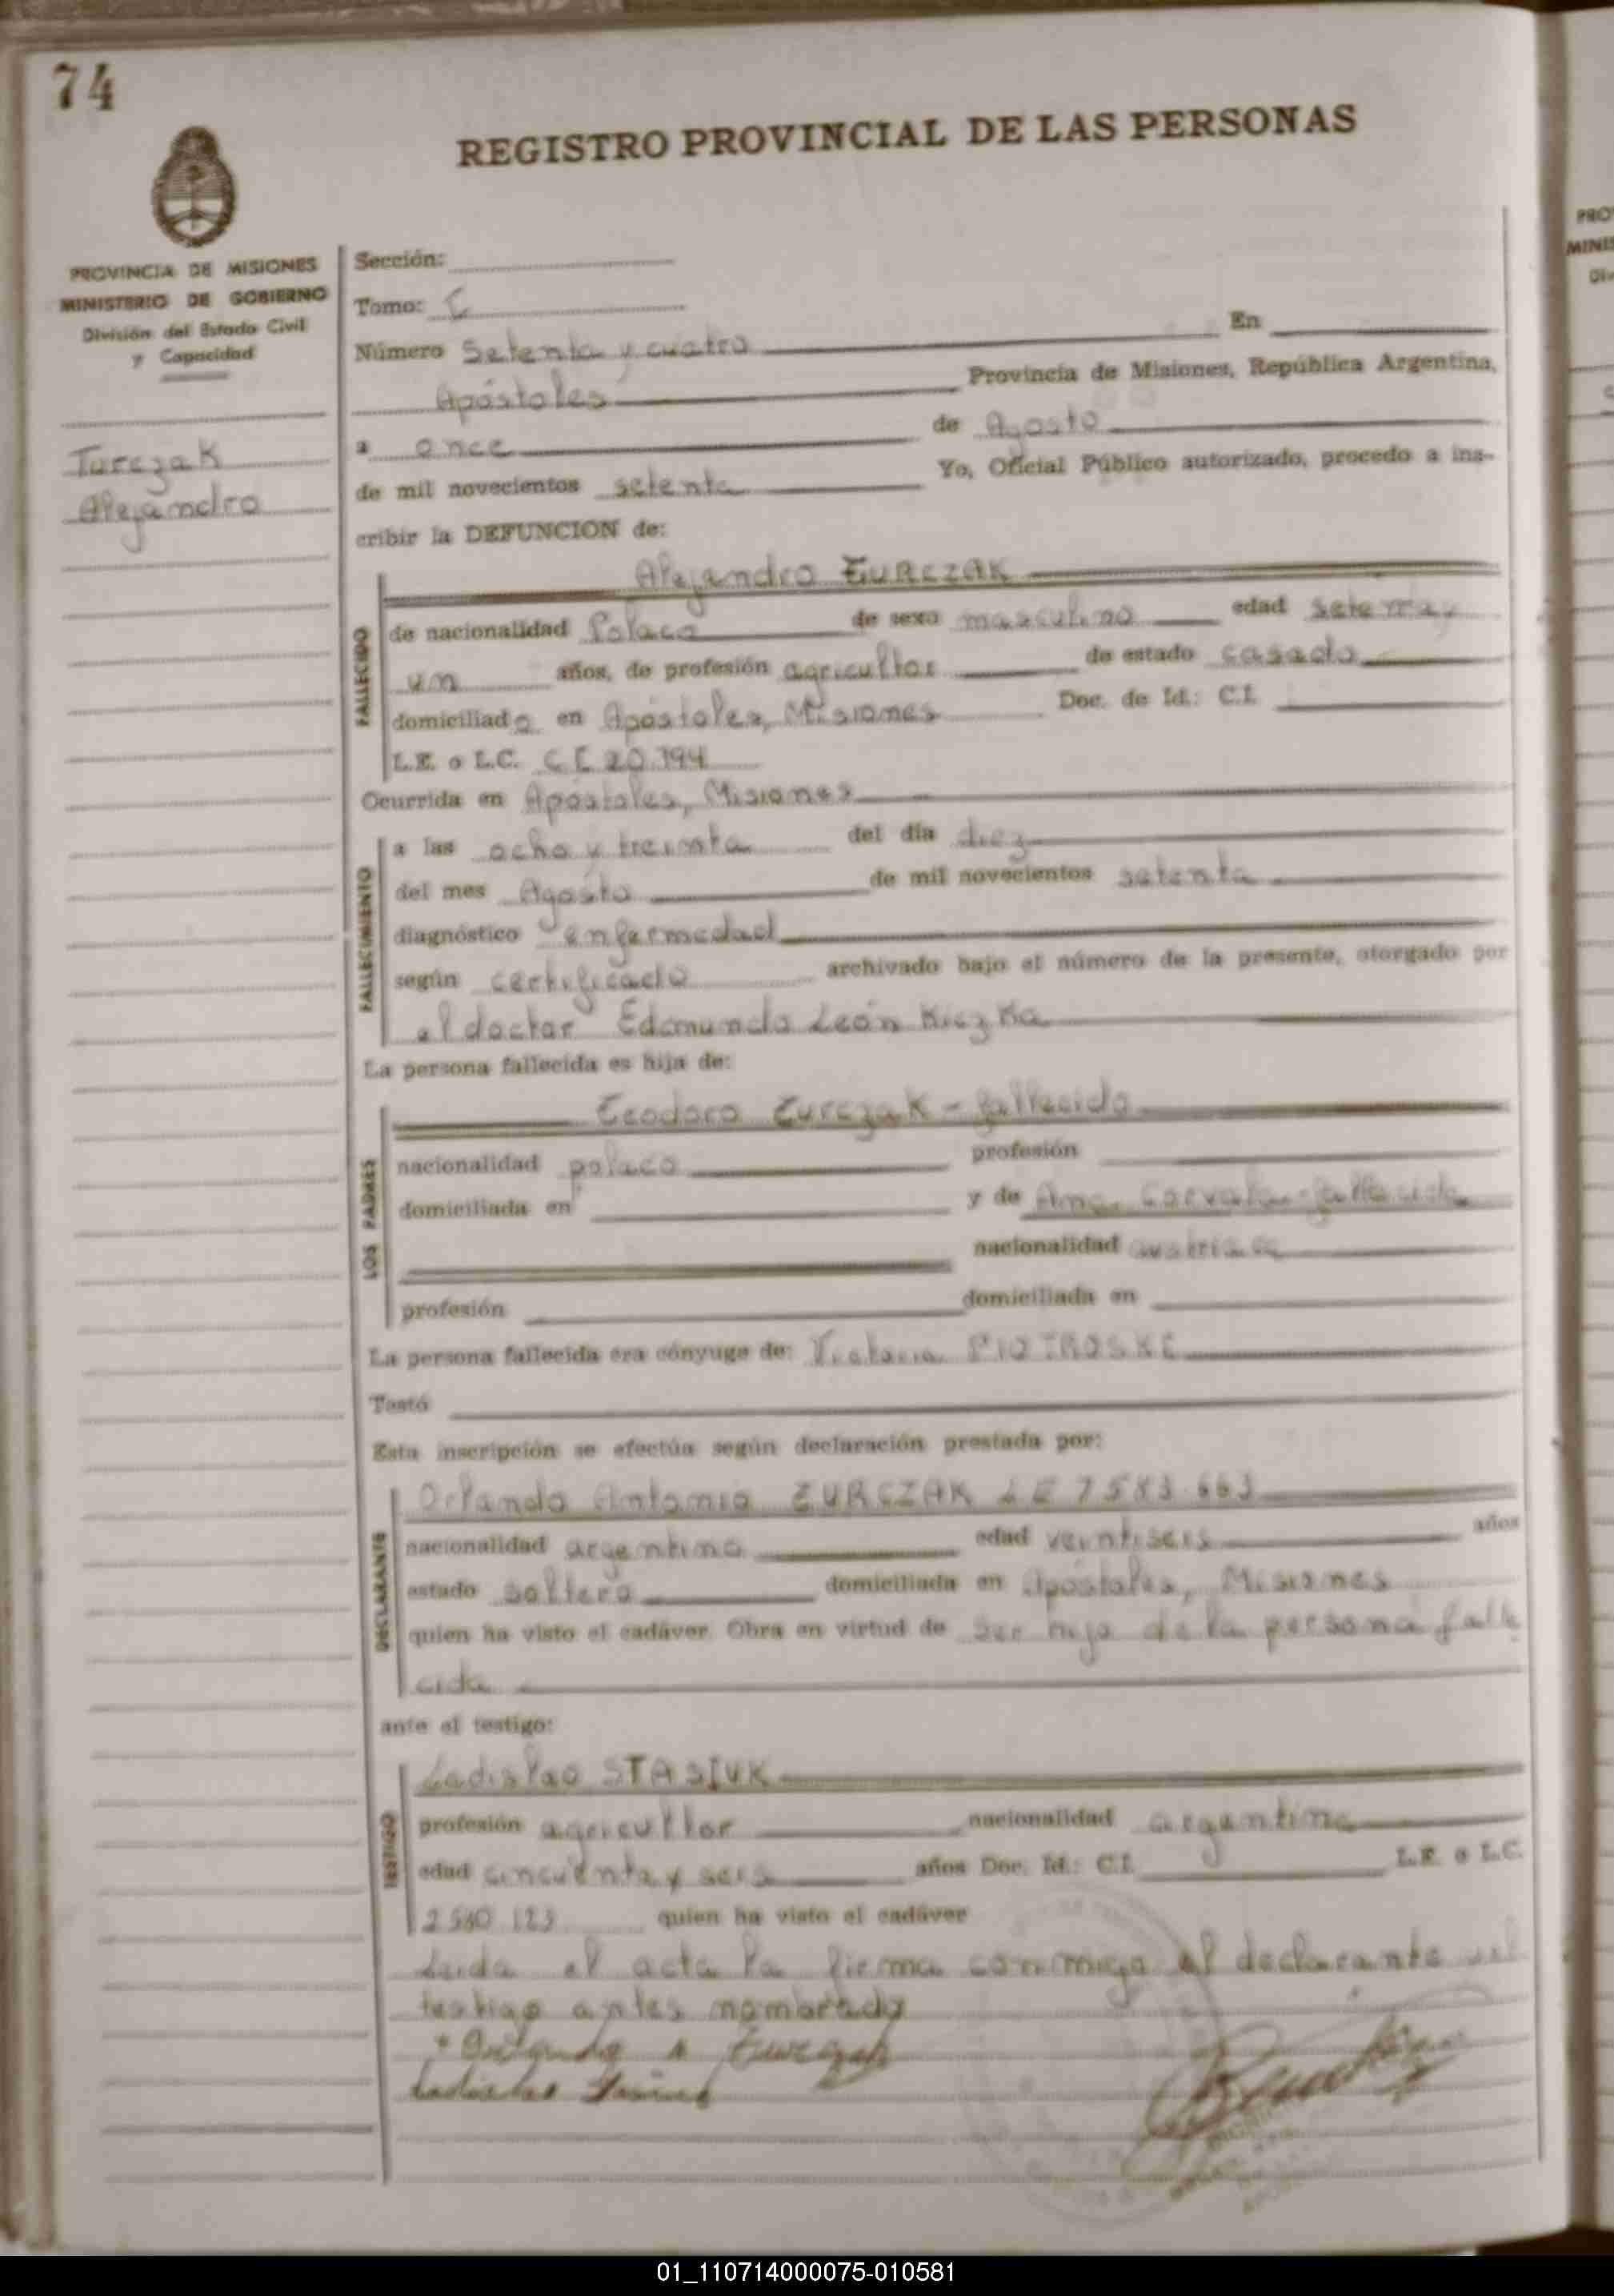 74
REGISTRO PROVINCIAL DE LAS PERSONAS
PROVINCIA DE MISIONES
MINISTERIO DE GOBIERNO
División del Estado Civil
y Capacidad
Turczak
Alejandro
Sección:
Tomo:
Número Setenta y cuatro En
Apóstoles Provincia de Misiones, República Argentina,
a once de Agosto
de mil novecientos setenta Yo, Oficial Público autorizado, procedo a ins-
cribir la DEFUNCION de:
Alejandro TURCZAK
FALLECIDO
de nacionalidad Polaco de sexo masculino edad setenta y
un años, de profesión agricultor de estado casado
domiciliado en Apóstoles, Misiones Doc. de Id.: C.I.
L.E. o L.C. C I 20.794
Ocurrida en Apóstoles, Misiones
FALLECIMIENTO
a las ocho y treinta del día diez
del mes Agosto de mil novecientos setenta
diagnóstico enfermedad
según certificado archivado bajo el número de la presente, otorgado por
el doctor Edmundo León
La persona fallecida es hija de:
Teodoro Turczak - fallecido
LOS PADRES
nacionalidad polaco profesión
domiciliada en y de Ana fallecida
nacionalidad
profesión domiciliada en
La persona fallecida era cónyuge de: Victoria PIOTROSKI
Testó
Esta inscripción se efectúa según declaración prestada por:
Orlando Antonio TURCZAK L E 7583.663
DECLARANTE
nacionalidad argentino edad veintiseis años
estado soltero domiciliada en Apóstoles, Misiones
quien ha visto el cadáver. Obra en virtud de ser hijo de la persona falle
cida
ante el testigo:
Ladislao STASIUK
TESTIGO
profesión agricultor nacionalidad argentino
edad cincuenta y seis años Doc. Id.: C.I. L.E. o L.C.
123 quien ha visto el cadáver
Leida el acta la firma conmigo el declarante y el
testigo antes nombrado
Orlando A Turczak
PRO
MINIS
01_110714000075-010581